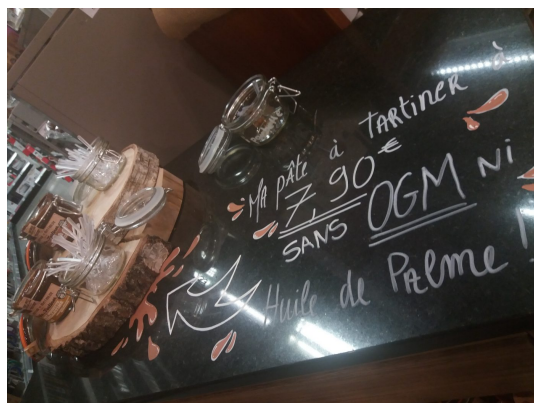 MA PÂTE à TARTINER à
7,90€
SANS OGM NI
Huile de PALME !